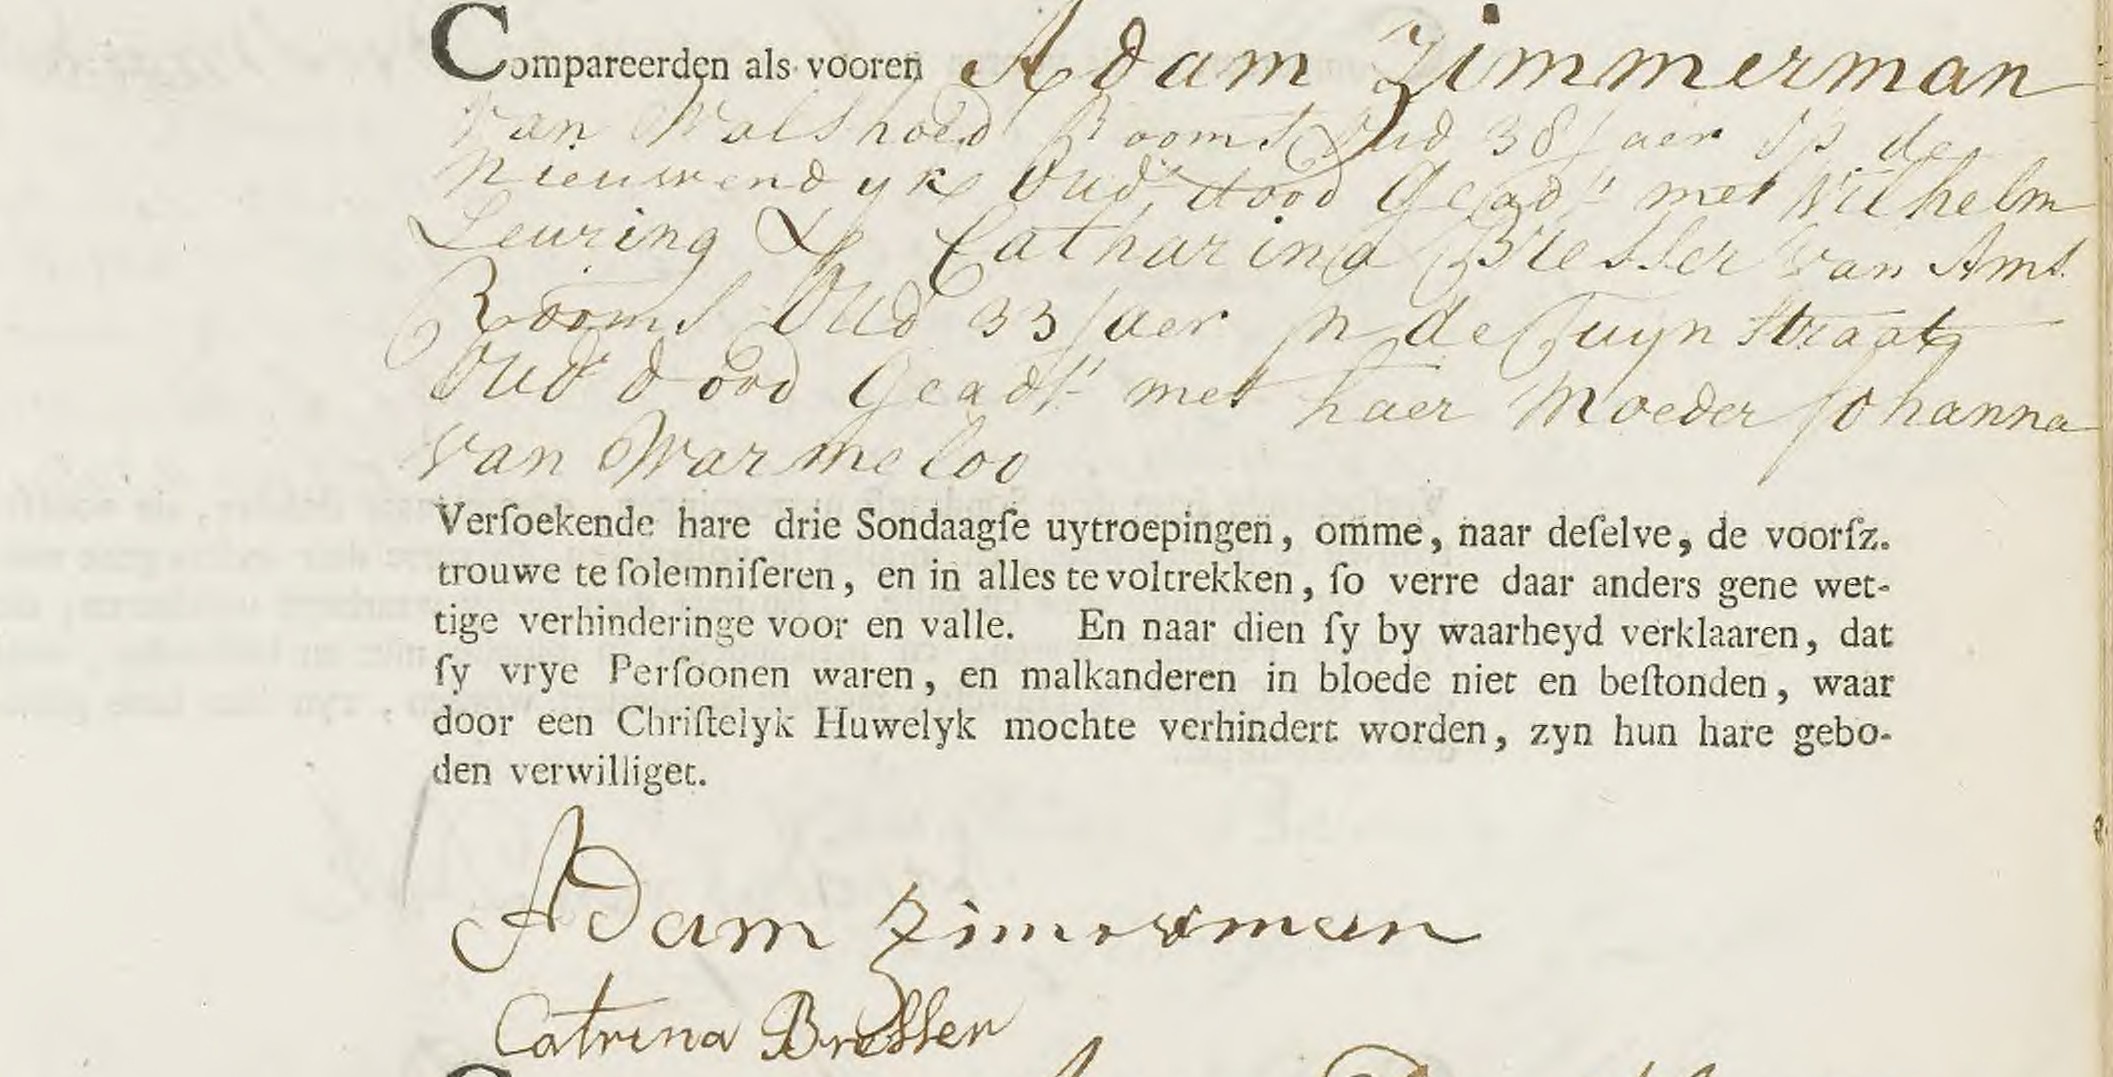 Compareerden als vooren Adam Zimmerman
van Walshoed Rooms Oud 38 Jaer op de
Nieuwendyk Oud.s dood Geads.t met Wilhelm
Leuring & Catharina Bresser van Ams
Rooms Oud 33 Jaer in de Tuyn straat
Oud.s dood Geads.t met haer Moeder Johanna
van Warmeloo
Verſoekende hare drie Sondaagſe uytroepingen, omme, naar deſelve, de voorſz.
trouwe te ſolemniſeren, en in alles te voltrekken, ſo verre daar anders gene wet-
tige verhinderinge voor en valle. En naar dien ſy by waarheyd verklaaren, dat
ſy vrye Perſoonen waren, en malkanderen in bloede niet en beſtonden, waar
door een Chriſtelyk Huwelyk mochte verhindert worden, zyn hun hare gebo-
den verwilliget.
Adam Zimmerman
Catrina Bresser